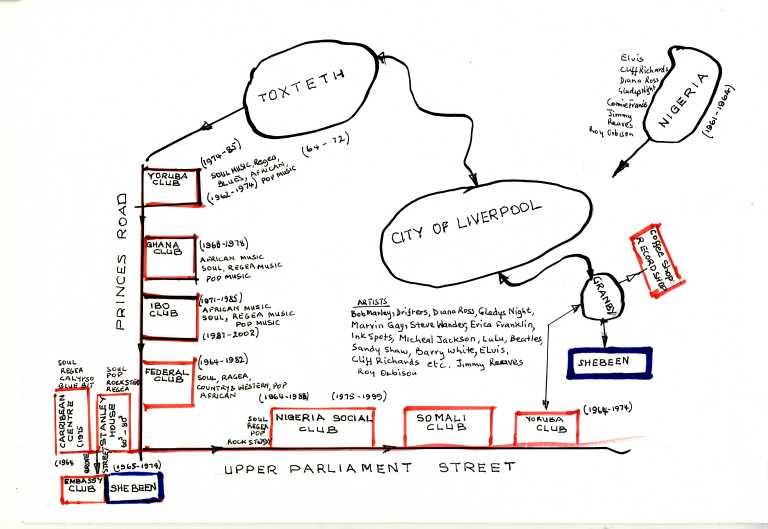 TOXTETH
(64-72)
Elvis
Cliff Richards
Diana Ross
Gladys Night
Connie Francis
Jimmy
Reaves
Roy Orbison
NIGERIA
(1961-1964)
CITY OF LIVERPOOL
PRINCES ROAD
YORUBA
CLUB
(1974-85)
SOUL MUSIC, REGEA,
BLUES, AFRICAN,
(1962-1974) POP MUSIC
GHANA
CLUB
(1968-1978)
AFRICAN MUSIC
SOUL, REGEA MUSIC
POP MUSIC
IBO
CLUB
(1971-1985)
AFRICAN MUSIC
SOUL, REGEA MUSIC
POP MUSIC
(1987-2002)
FEDERAL
CLUB
(1964-1982)
SOUL, RAGEA,
COUNTRY & WESTERN, POP
AFRICAN
ARTISTS
Bob Marley, Drifters, Diana Ross, Gladys Night,
Marvin Gay, Steve Wander, Erica Franklin,
Ink Spots, Micheal Jackson, Lulu, Beatles,
Sandy Shaw, Barry White, Elvis,
Cliff Richards etc. Jimmy Reaves
Roy Orbison
GRANBY
Coffee Shop
RECORD SHOP
SHEBEEN
SOUL
REGEA
CALYPSO
BLUE BIT
CARRIBEAN
CENTRE
(1975
(1968
SOUL
POP
ROCKSTED
REGEA
STANLEY
HOUSE
GROVE
STREET
(1965-1974)
EMBASSY
CLUB
SHEBEEN
(1964-1988)
(1975-1999)
SOUL
REGEA
POP
ROCK STUDY
NIGERIA SOCIAL
CLUB
SOMALI
CLUB
YORUBA
CLUB
(1964-1974)
UPPER PARLIAMENT STREET